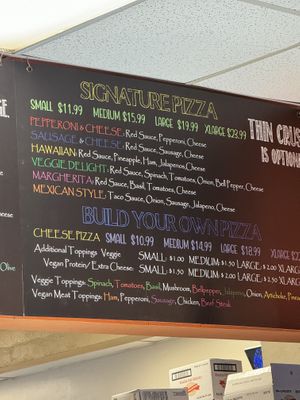 SIGNATURE PIZZA
SMALL $11.99 MEDIUM $15.99 LARGE $19.99 XLARGE $23.99
PEPPERONI & CHEESE: Red Sauce, Pepperoni, Cheese
SAUSAGE & CHEESE: Red Sauce, Sausage, Cheese
HAWAIIAN: Red Sauce, Pineapple, Ham, Jalapenos, Cheese
VEGGIE DELIGHT: Red Sauce, Spinach, Tomatoes, Onion, Bell Pepper, Cheese
MARGHERITA: Red Sauce, Basil, Tomatoes, Cheese
MEXICAN STYLE: Taco Sauce, Onion, Sausage, Jalapeno, Cheese
THIN CRUS
IS OPTION
BUILD YOUR OWN PIZZA
CHEESE PIZZA SMALL $10.99 MEDIUM $14.99 LARGE $18.99 XLARGE
Additional Toppings: Veggie SMALL: $1.00 MEDIUM: $1.50 LARGE: $2.00 XLAR
Vegan Protein/ Extra Cheese: SMALL: $1.50 MEDIUM: $2.00 LARGE: $2.50 XLAR
Veggie Toppings: Spinach, Tomatoes, Basil, Mushroom, Bellpepper, Jalapenos, Onion, Artichoke, Pinea
Vegan Meat Toppings: Ham, Pepperoni, Sausage, Chicken, Beef Steak
Olive